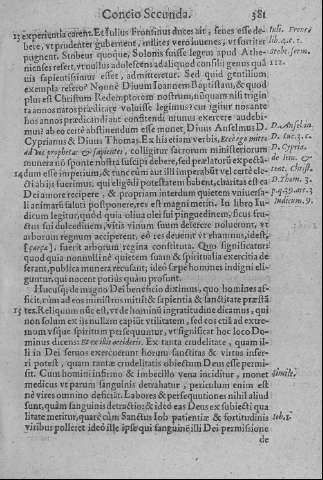 Concio Secunda. 381
13 experientia carent. Et Iulius Frontinus duces ait, senes esse de-
bere, vt prudenter gubernent, milites vero iuuenes, vt fortiter
pugnent. Stobeus quoque, Solonis suisse legem apud Athe-
nienses refert, vt nullus adolescens ad aliquod consilij genus quã
uis sapientissimus esset, admitteretur. Sed quid gentilium
exempla refero? Nonne Diuum Ioannem Baptistam, & quod
plus est Christum Redemptorem nostrum, nũquam nisi trigin
ta annos natos prædicare voluisse legimus? cur igitur nos ante
hos annos prædicandi aut constituendi munus exercere audebi-
mus? ab eo certè abstinendum esse monet Diuus Anselmus D.
Cyprianus & Diuus Thomas. Ex his etiam verbis, Ecce ego mitto
ad vos prophetas & sapientes, colligitur sacrorum ministeriorum
munera nõ sponte nostra suscipi debere, sed prælatorũ expectã-
14 dum esse imperium, & tunc cum aut illi imperarint vel certè ele-
cti ab ijs fuerimus, qui eligendi potestatem habent, charitatis est ea
Dei amore recipere, & proprium interdum quietem vniuersa-
li animarũ saluti postponere, res est magni meriti. In libro Iu-
dicum legitur, quòd quia oliua olei sui pinguedinem, ficus fru-
ctus sui dulcedinem, vitis vinum suum deserere noluerunt, vt
arborum regnum acciperent, eò res deuenit vt rhamnus, idest,
[çarça]. fuerit arborum regina constituta. Quo significatur
quod quia nonnulli nè quietem suam & spiritualia exercitia de
serant, publica munera recusant; ideò sæpè homines indigni eli-
guntur, qui nocent potiùs quàm prosunt.
Hactusque de magno Dei beneficio diximus, quo homines af-
ficit, cùm ad eos ministros mittit & sapientia & sanctitate præstã
15 tes. Reliquum nũc est, vt de hominũ ingratitudine dicamus, qui
non solum ex ijs nullam capiũt vtilitatem, sed eos etiã ad extre-
mum vsque spiritum persequuntur, vt significat hoc loco Do-
minus dicens: Et ex illis occidetis. Ex tanta crudelitate, quam il-
li in Dei seruos exercuerunt horum sanctitas & virtus infer-
ri potest, quam tantæ crudelitatis obiectum Deus esse permi-
sit. Cum homini infirmo & imbecillo vena inciditur, monet
medicus vt parum sanguinis detrahatur, periculum enim est
nè vires omnino deficiãt. Labores & persequutiones nihil aliud
sunt, quàm sanguinis detractio: & ideò eas Deus ex subiecti qua
litate metitur, quare cùm Sanctus Iob patientiæ & fortitudinis
viribus polleret ideò ille ipse qui sanguinẽ illi Dei permissione
de
Iul. Front.
lib. 4. c. 1.
Stob. serm.
112.
D. Anselm. in
D. Luc. 3. c.
D. Cypria.
D. Thom. 3.
p. q. 39. art. 3
Iudicum. 9.
Simile.
Iob. 1.